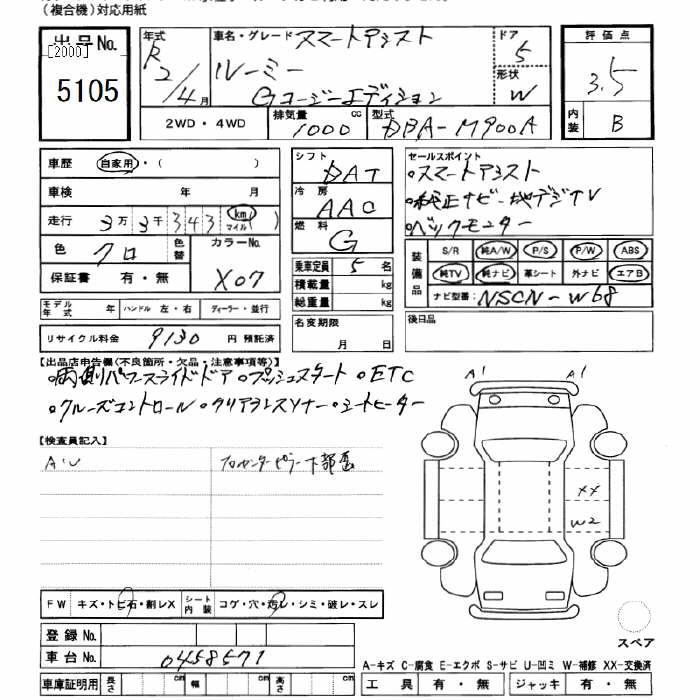 (複合機)対応用紙
出品No.
[2000]
5105
年式
R2/4月
車名・グレード スマートアシスト
ルーミー
Gコージーエディション
ドア
5
形状
W
評価点
3.5
内装
B
2WD・4WD
排気量 1000 cc
型式 DBA-M900A
車歴 自家用・( )
車検 年 月
走行 3万3千343 km マイル ( )
色 クロ 色替
カラーNo. X07
保証書 有・無
シフト DAT
冷房 AAC
燃料 G
乗車定員 5名
積載量 kg
総重量 kg
セールスポイント
・スマートアシスト
・純正ナビ・地デジTV
・バックモニター
装備品
S/R 純A/W P/S P/W ABS
純TV 純ナビ 革シート 外ナビ エアB
ナビ型番: NSCN-W68
モデル年式 年 ハンドル 左・右 ディーラー・並行
リサイクル料金 9130 円 預託済
名変期限
月 日
後日品
【出品店申告欄(不良箇所・欠品・注意事項等)】
・両側パワースライドドア ・プッシュスタート ・ETC
・クルーズコントロール ・クリアランスソナー ・シートヒーター
【検査員記入】
AU
フロセンターピラー下部凹
A1 A1
XX
W2
FW キズ・トビ石・割レX
シート内装 コゲ・穴・汚レ・シミ・破レ・スレ
登録No.
車台No. 0458571
車庫証明用 長さ cm 幅 cm 高さ cm
スペア
A-キズ C-腐食 E-エクボ S-サビ U-凹ミ W-補修 XX-交換済
工具 有・無 ジャッキ 有・無